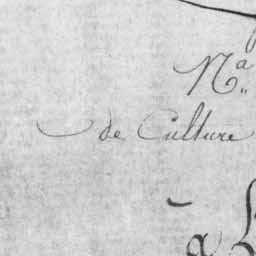 Na
de Culture
a